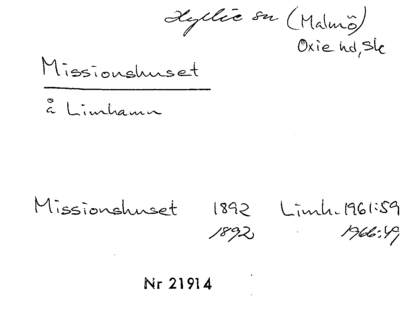 Hyllie sn (Malmö)
Oxie hd, Sk
Missionshuset
å Limhamn
Missionshuset 1892 Limh. 1961:59
1892 1966:49
Nr 21914